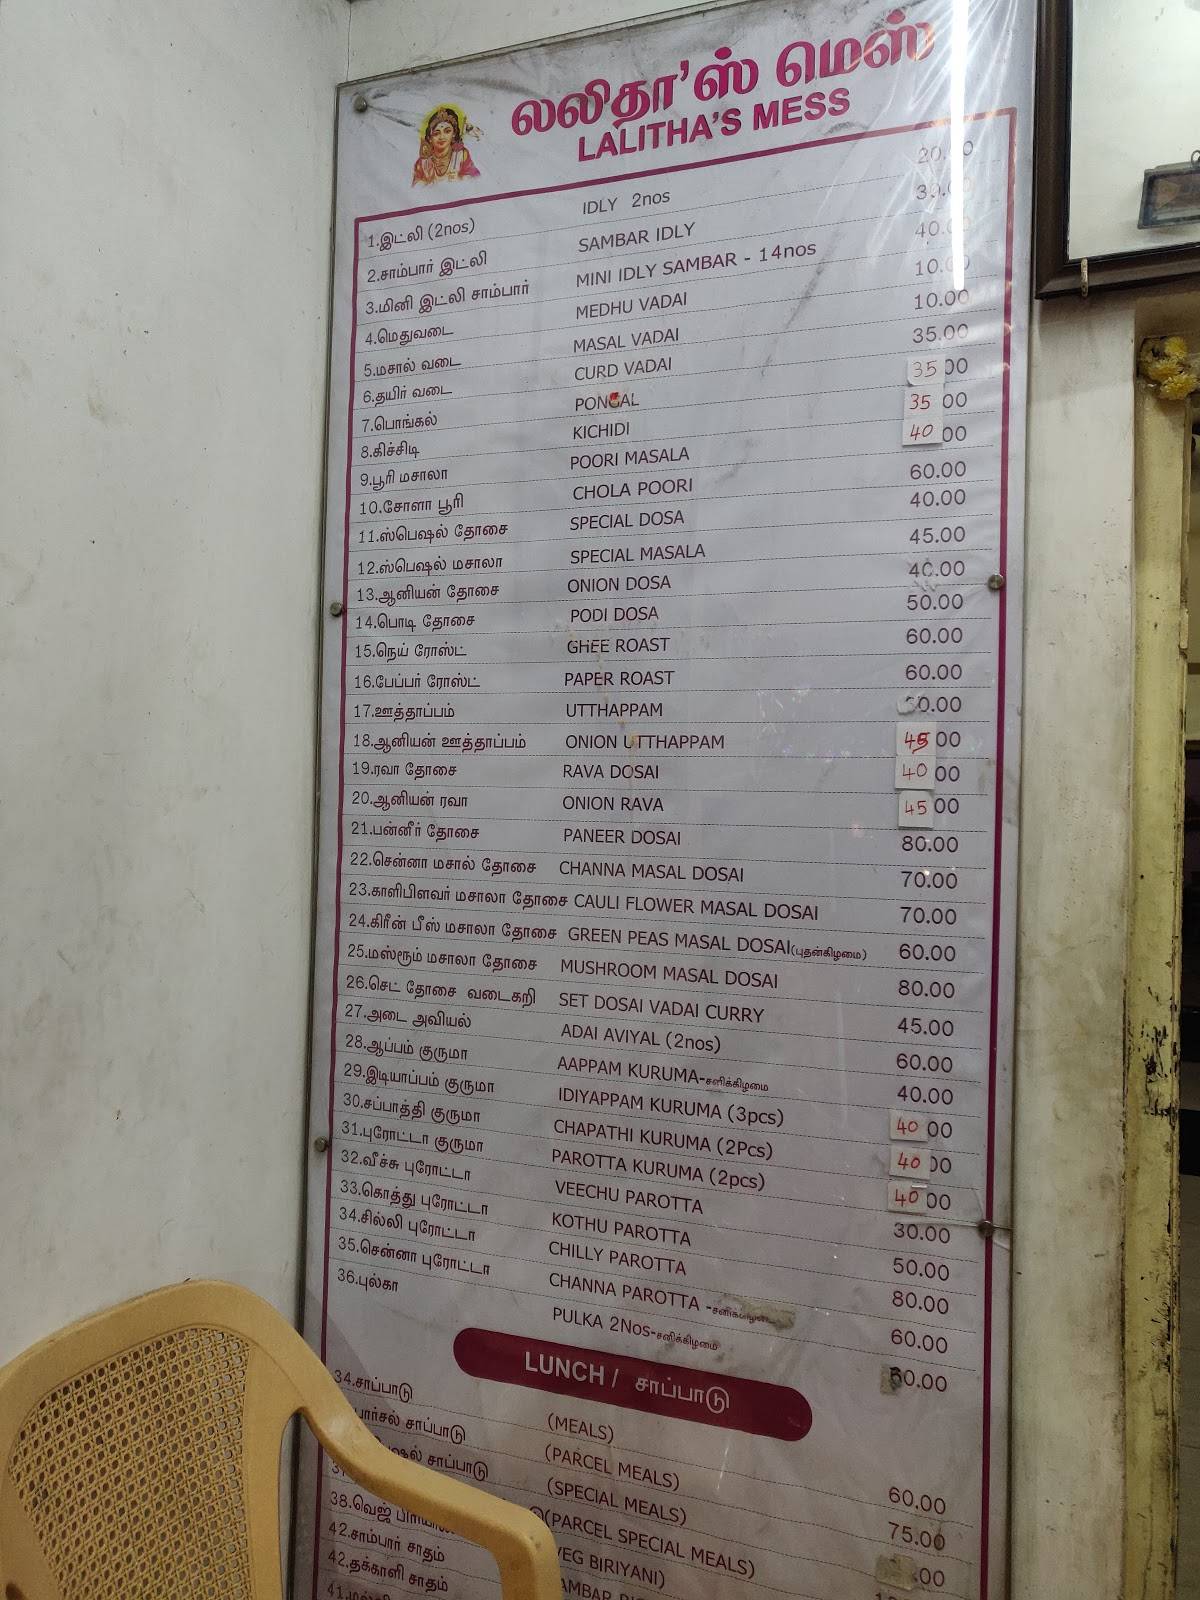 லலிதா'ஸ் மெஸ்
LALITHA'S MESS
1.இட்லி (2nos) IDLY 2nos 20.00
2.சாம்பார் இட்லி SAMBAR IDLY 30.00
3.மினி இட்லி சாம்பார் MINI IDLY SAMBAR - 14nos 40.00
4.மெதுவடை MEDHU VADAI 10.00
5.மசால் வடை MASAL VADAI 10.00
6.தயிர் வடை CURD VADAI 35.00
7.பொங்கல் PONGAL 35 00
8.கிச்சிடி KICHIDI 35 00
9.பூரி மசாலா POORI MASALA 40 00
10.சோளா பூரி CHOLA POORI 60.00
11.ஸ்பெஷல் தோசை SPECIAL DOSA 40.00
12.ஸ்பெஷல் மசாலா SPECIAL MASALA 45.00
13.ஆனியன் தோசை ONION DOSA 40.00
14.பொடி தோசை PODI DOSA 50.00
15.நெய் ரோஸ்ட் GHEE ROAST 60.00
16.பேப்பர் ரோஸ்ட் PAPER ROAST 60.00
17.ஊத்தாப்பம் UTTHAPPAM 0.00
18.ஆனியன் ஊத்தாப்பம் ONION UTTHAPPAM 45 00
19.ரவா தோசை RAVA DOSAI 40 00
20.ஆனியன் ரவா ONION RAVA 45 00
21.பன்னீர் தோசை PANEER DOSAI 80.00
22.சென்னா மசால் தோசை CHANNA MASAL DOSAI 70.00
23.காளிபிளவர் மசாலா தோசை CAULI FLOWER MASAL DOSAI 70.00
24.கிரீன் பீஸ் மசாலா தோசை GREEN PEAS MASAL DOSAI(புதன்கிழமை) 60.00
25.மஸ்ரூம் மசாலா தோசை MUSHROOM MASAL DOSAI 80.00
26.செட் தோசை வடைகறி SET DOSAI VADAI CURRY 45.00
27.அடை அவியல் ADAI AVIYAL (2nos) 60.00
28.ஆப்பம் குருமா AAPPAM KURUMA-சனிக்கிழமை 40.00
29.இடியாப்பம் குருமா IDIYAPPAM KURUMA (3pcs) 40 00
30.சப்பாத்தி குருமா CHAPATHI KURUMA (2Pcs) 40 00
31.புரோட்டா குருமா PAROTTA KURUMA (2pcs) 40 00
32.வீச்சு புரோட்டா VEECHU PAROTTA 30.00
33.கொத்து புரோட்டா KOTHU PAROTTA 50.00
34.சில்லி புரோட்டா CHILLY PAROTTA 80.00
35.சென்னா புரோட்டா CHANNA PAROTTA 60.00
36.புல்கா PULKA 2Nos-சனிக்கிழமை 0.00
LUNCH / சாப்பாடு
34.சாப்பாடு (MEALS) 60.00
பார்சல் சாப்பாடு (PARCEL MEALS) 75.00
சாப்பாடு (SPECIAL MEALS) .00
(PARCEL SPECIAL MEALS)
38.வெஜ் VEG BIRIYANI)
42.சாம்பார் சாதம்
42.தக்காளி சாதம்